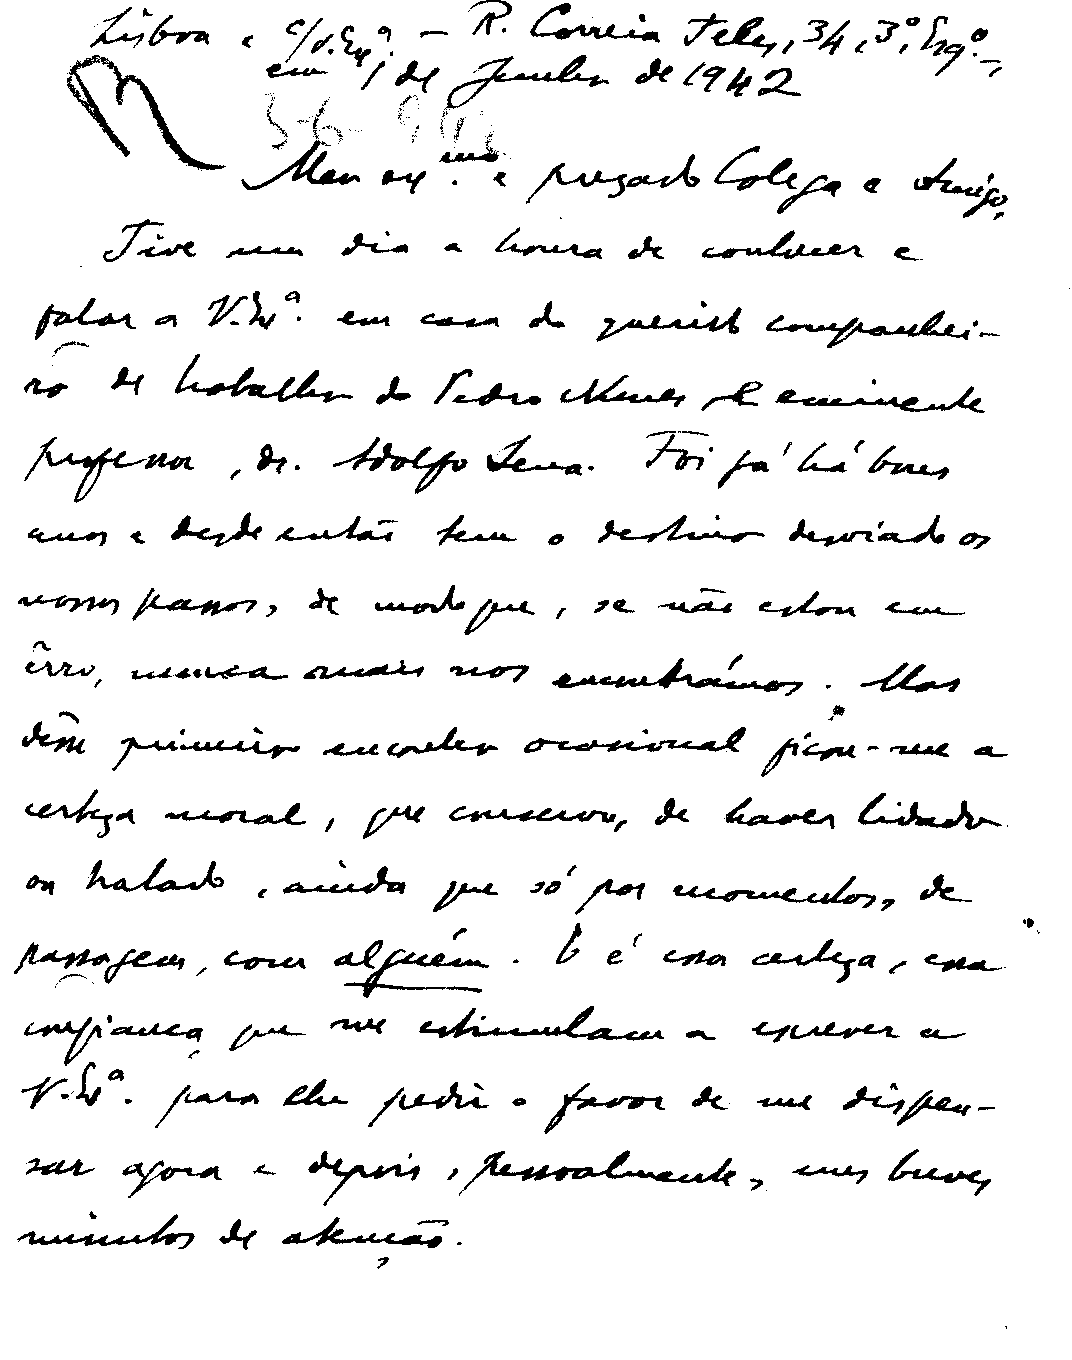 Lisboa e c/ V. Exª. – R. Correia Teles, 34, 3º. Esqº.,
em 1 de Junho de 1942
3-6-942
Meu exmo. e prezado Colega e Amigo,
Tive um dia a honra de conhecer e
falar a V. Exª. em casa do querido companhei-
ro de trabalho do Pedro Nunes e eminente
professor, dr. Adolfo Sena. Foi já há bons
anos e desde então tem o destino desviado os
nossos passos, de modo que, se não estou em
êrro, nunca mais nos encontrámos. Mas
dêsse primeiro encontro ocasional ficou-me a
certeza moral, que conservo, de haver lidado
ou tratado, ainda que só por momentos, de
passagem, com alguém. E é essa certeza, essa
confiança que me estimulam a escrever a
V. Exª. para lhe pedir o favor de me dispen-
sar agora e depois, pessoalmente, uns breves
minutos de atenção.